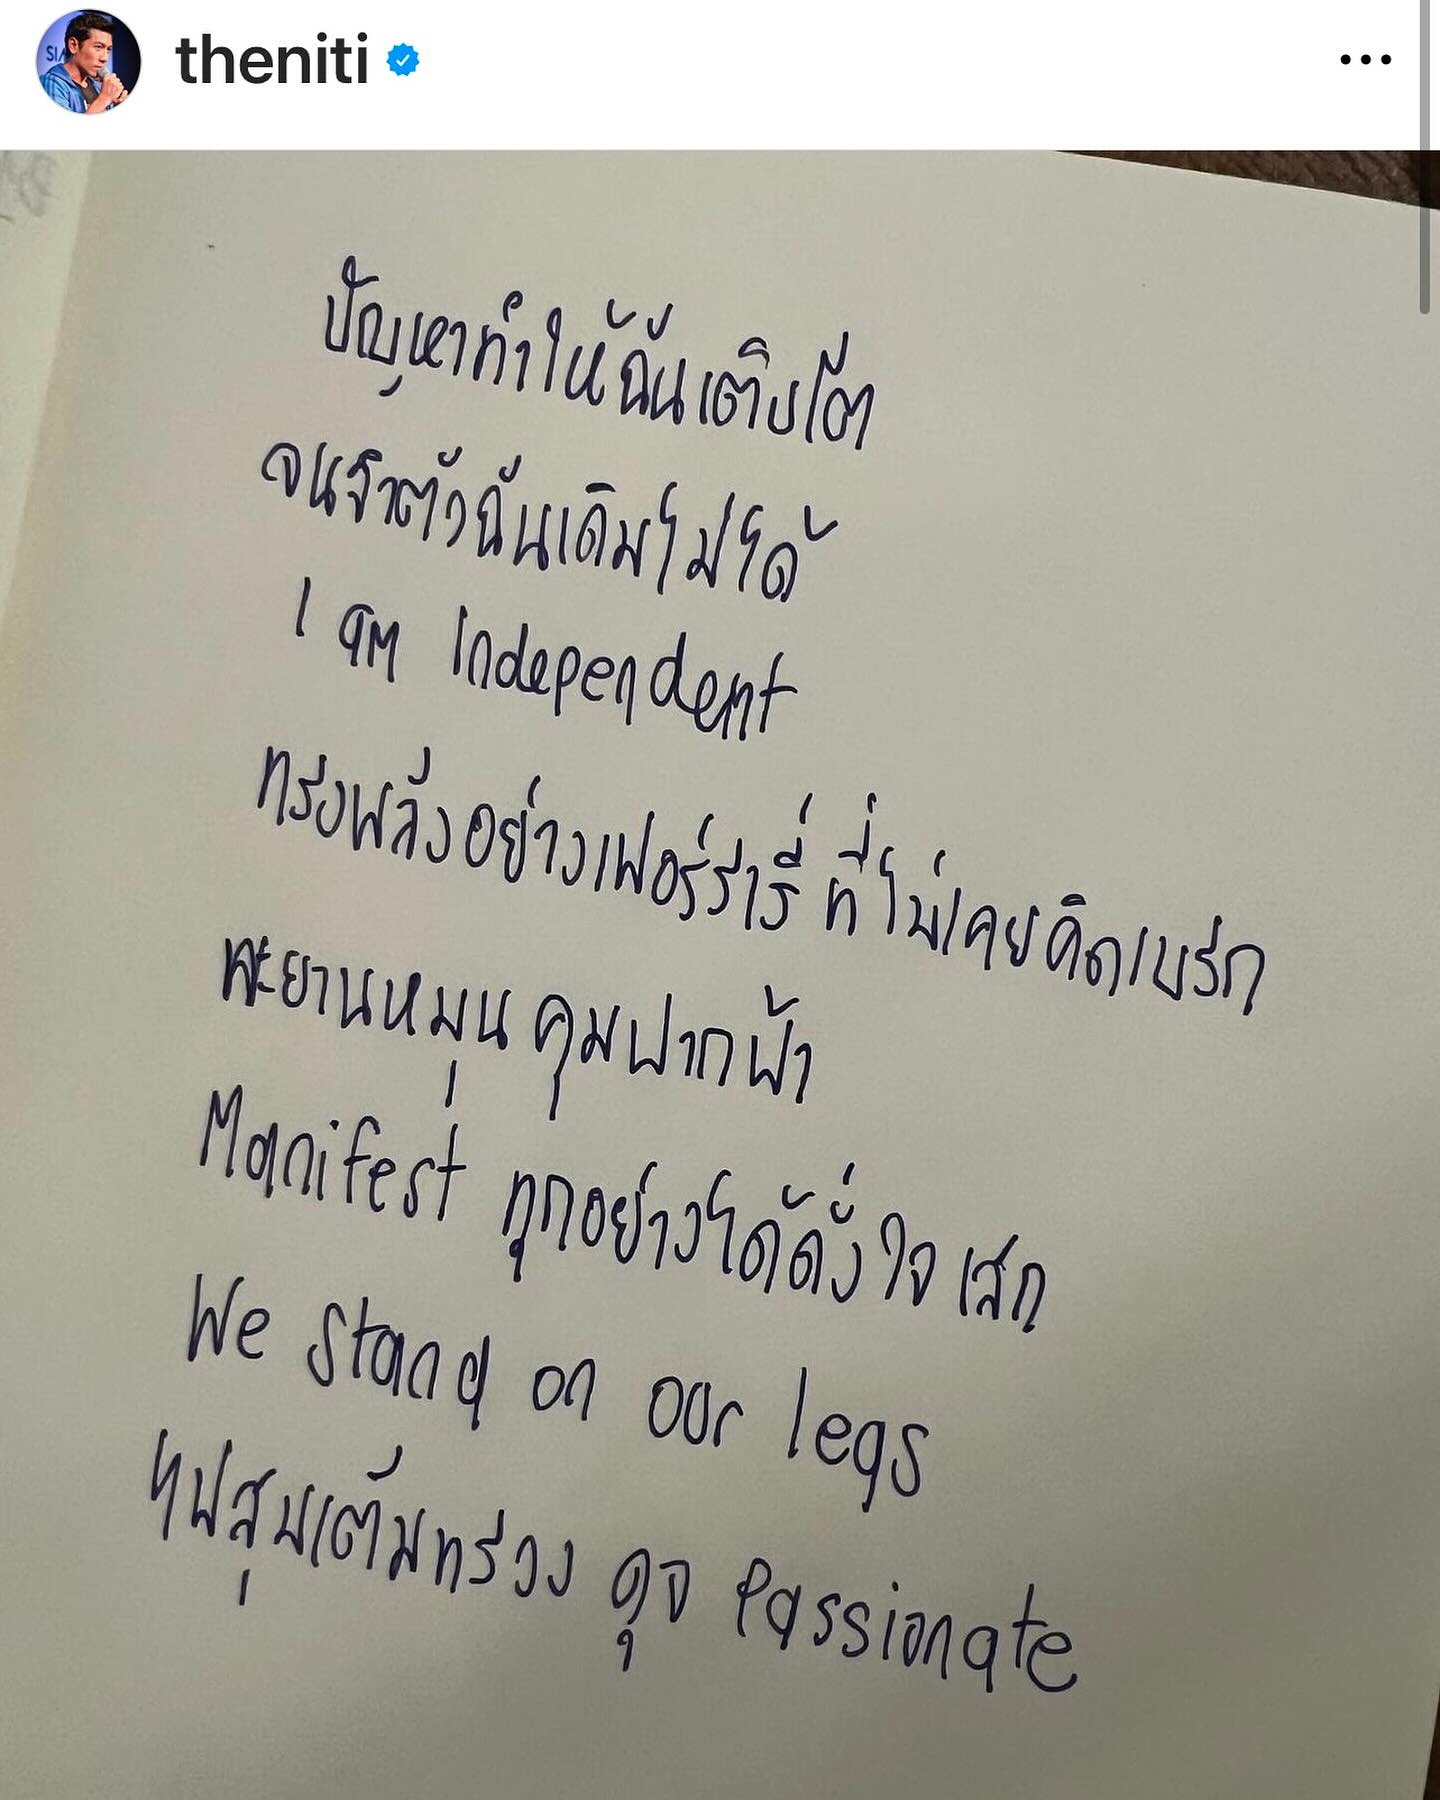 theniti
ปัญหาทำให้ฉันเติบโต
จนจำตัวฉันเดิมไม่ได้
I am Independent
ทรงพลังอย่างเฟอร์รารี่ ที่ไม่เคยคิดเบรก
ทะยานหมุน คุมฟากฟ้า
Manifest ทุกอย่างได้ดั่งใจ เสก
We Stand on our legs
ไฟสุมเต็มทรวง ดุจ Passionate